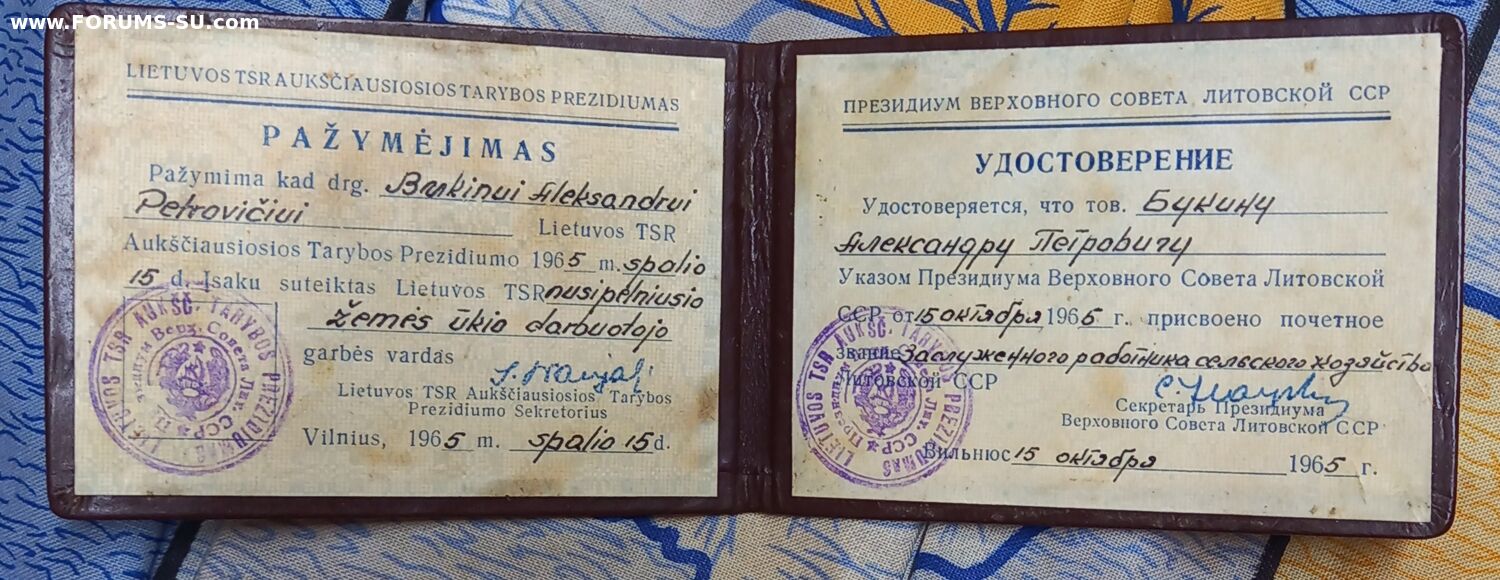 www.FORUMS-SU.com
LIETUVOS TSR AUKŠČIAUSIOSIOS TARYBOS PREZIDIUMAS
PAŽYMĖJIMAS
Pažymima kad drg. Bukinui Aleksandrui
Petrovičiui Lietuvos TSR
Aukščiausiosios Tarybos Prezidiumo 1965 m. spalio
15 d. Įsaku suteiktas Lietuvos TSR nusipelniusio
žemės ūkio darbuotojo
garbės vardas
Lietuvos TSR Aukščiausiosios Tarybos
Prezidiumo Sekretorius
Vilnius, 1965 m. spalio 15 d.
LIETUVOS TSR AUKŠČ. TARYBOS PREZIDIUMAS
Президиум Верх. Совета Лит. ССР
ПРЕЗИДИУМ ВЕРХОВНОГО СОВЕТА ЛИТОВСКОЙ ССР
УДОСТОВЕРЕНИЕ
Удостоверяется, что тов. Букину
Александру Петровичу
Указом Президиума Верховного Совета Литовской
ССР от 15 октября 1965 г. присвоено почетное
звание Заслуженного работника сельского хозяйства
Литовской ССР
Секретарь Президиума
Верховного Совета Литовской ССР
Вильнюс 15 октября 1965 г.
LIETUVOS TSR AUKŠČ. TARYBOS PREZIDIUMAS
Президиум Верх. Совета Лит. ССР